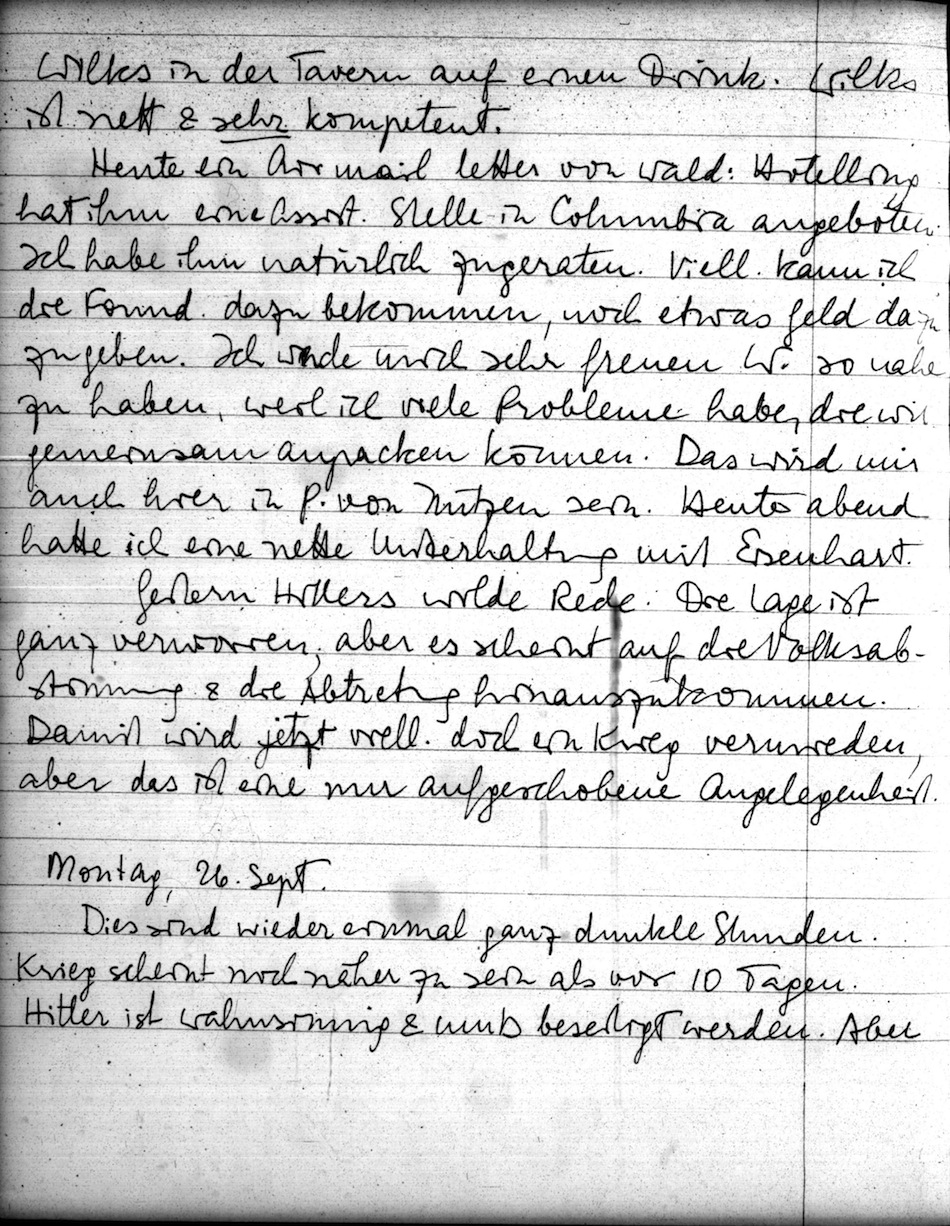 Wilks in der Tavern auf einen Drink. Wilks
ist nett & sehr kompetent.
Heute ein Air mail letter von Wald: Hotelling
hat ihm eine Assist. Stelle in Columbia angeboten.
Ich habe ihm natürlich zugeraten. Viell. kann ich
die Found. dazu bekommen, noch etwas Geld dazu
zu geben. Ich würde mich sehr freuen W. so nahe
zu haben, weil ich viele Probleme habe, die wir
gemeinsam anpacken können. Das wird mir
auch hier in P. von Nutzen sein. Heute abend
hatte ich eine nette Unterhaltung mit Eisenhart.
Gestern Hitlers wilde Rede. Die Lage ist
ganz verworren, aber es scheint auf die Volksab-
stimmung & die Abtretung hinauszukommen.
Damit wird jetzt viell. doch ein Krieg vermieden,
aber das ist eine nur aufgeschobene Angelegenheit.
Montag, 26. Sept.
Dies sind wieder einmal ganz dunkle Stunden.
Krieg scheint noch näher zu sein als vor 10 Tagen.
Hitler ist wahnsinnig & muß beseitigt werden. Aber